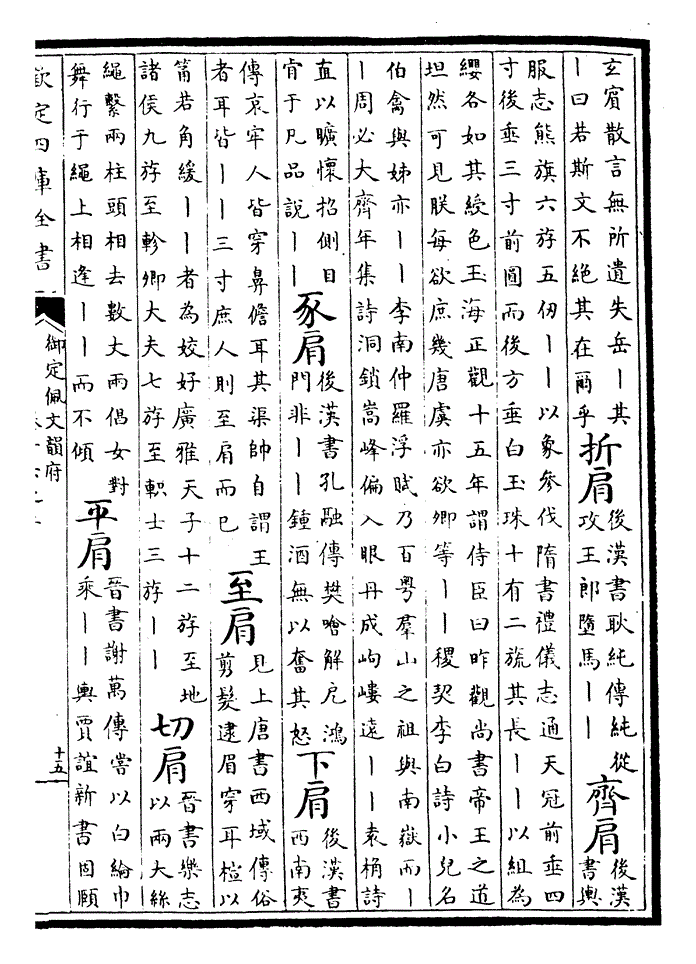 玄賓散言無所遺失岳丨其
丨曰若斯文不絕其在爾乎
折肩
後漢書耿純傳純從
攻王郎墮馬丨丨
齊肩
後漢
書輿
服志熊旗六斿五仞丨丨以象參伐隋書禮儀志通天冠前垂四
寸後垂三寸前圓而後方垂白玉珠十有二旒其長丨丨以組為
纓各如其綬色玉海正觀十五年謂侍臣曰昨觀尚書帝王之道
坦然可見朕每欲庶幾唐虞亦欲卿等丨丨稷契李白詩小兒名
伯禽與姊亦丨丨李南仲羅浮賦乃百粤羣山之祖與南嶽而丨
丨周必大齊年集詩洞鎖嵩峰偏入眼丹成岣嶁遠丨丨袁桷詩
直以曠懷招側目
肯于凡品說丨丨
豕肩
後漢書孔融傳樊噲解卮鴻
門非丨丨鍾酒無以奮其怒
下肩
後漢書
西南夷
傳哀牢人皆穿鼻儋耳其渠帥自謂王
者耳皆丨丨三寸庶人則至肩而已
至肩
見上唐書西域傳俗
剪髮逮眉穿耳楦以
筩若角緩丨丨者為姣好廣雅天子十二斿至地
諸侯九斿至軫卿大夫七斿至軹士三斿丨丨
切肩
晉書樂志
以兩大絲
繩繫兩柱頭相去數丈兩倡女對
舞行于繩上相逢丨丨而不傾
平肩
晉書謝萬傳嘗以白綸巾
乘丨丨輿賈誼新書固頤
欽定四庫全書
御定佩文韻府
十五